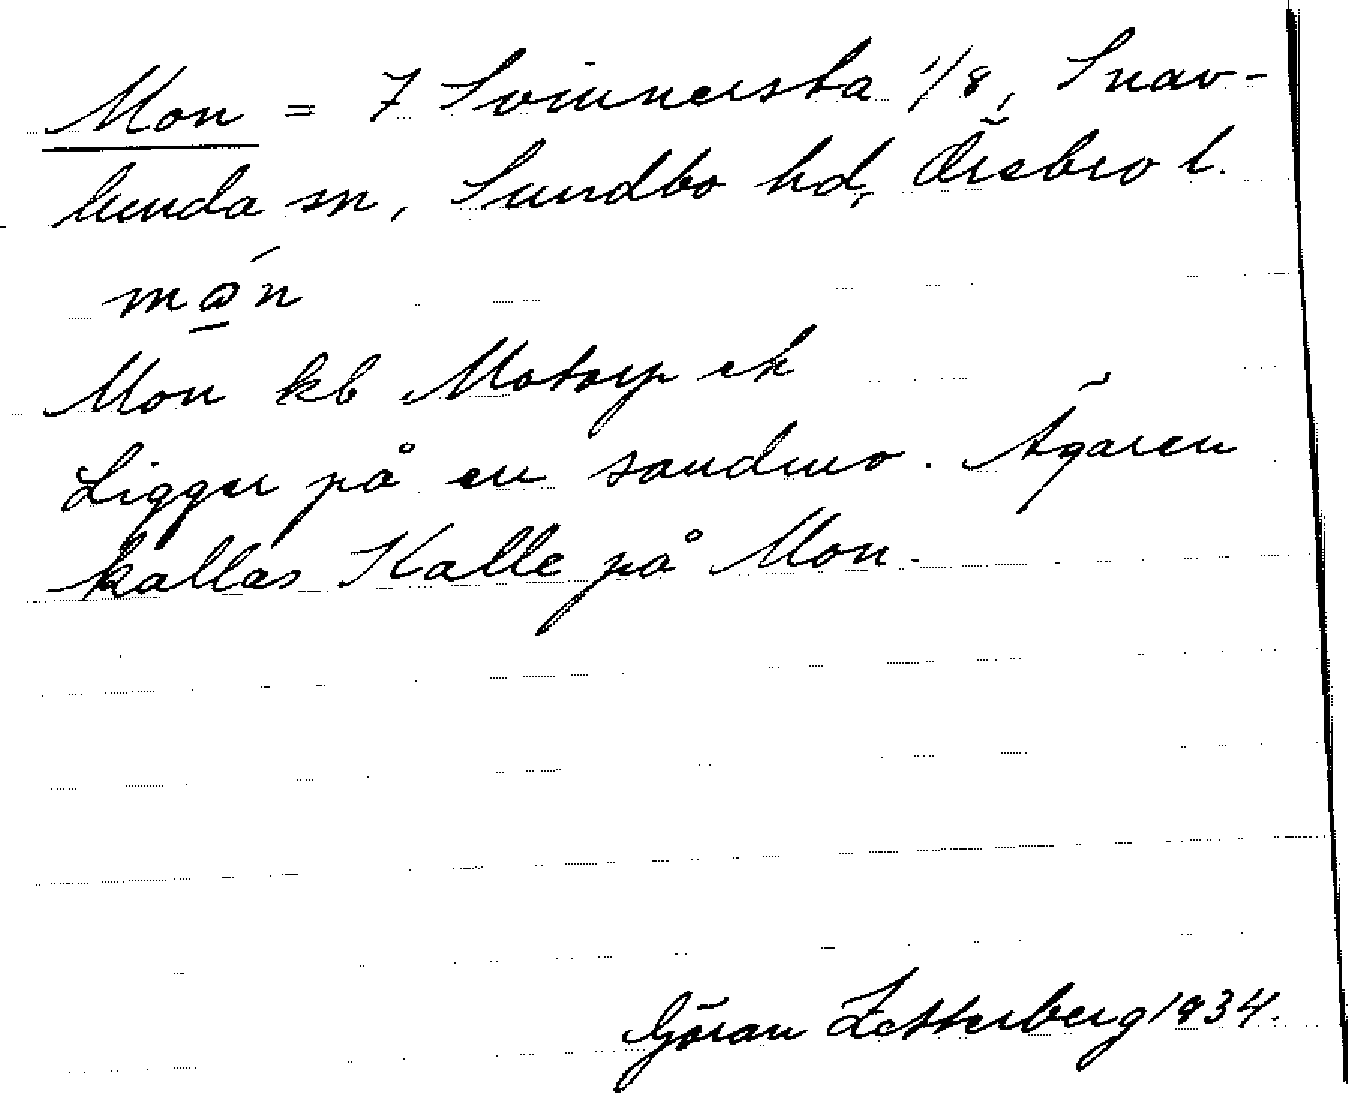 Mon = 7 Svinnersta 1/8, Snav-
lunda sn, Sundbo hd, Örebro l.
mó̱n
Mon kb Motorp ek
Ligger på en sandmo. Ägaren
kallas Kalle på Mon.
Göran Zetterberg 1934.